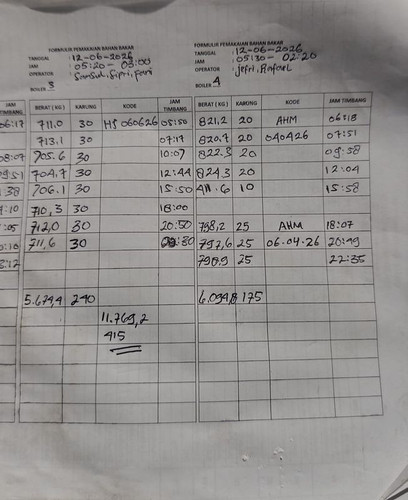 FORMULIR PEMAKAIAN BAHAN BAKAR
TANGGAL : 12-06-2026
JAM : 05:20 - 03:00
OPERATOR :
BOILER 3
JAM TIMBANG BERAT (KG) KARUNG KODE JAM TIMBANG
06:17 711,0 30 HS 060626 05:50
713,1 30 07:17
08:07 705.6 30 10:07
704,7 30 12:44
706,1 30 15:50
710,3 30 18:00
712,0 30 20:50
711,6 30
5.674,4 240
11.769,2
415
FORMULIR PEMAKAIAN BAHAN BAKAR
TANGGAL : 12-06-2026
JAM : 05:30 - 02:20
OPERATOR : Jefri,
BOILER 4
BERAT (KG) KARUNG KODE JAM TIMBANG
821,2 20 AHM 06:18
820,7 20 040426 07:51
822.3 20 09:58
824,3 20 12:04
411.6 10 15:58
798,2 25 AHM 18:07
797,6 25 06.04.26 20:49
798,9 25 22:35
6.094,8 175